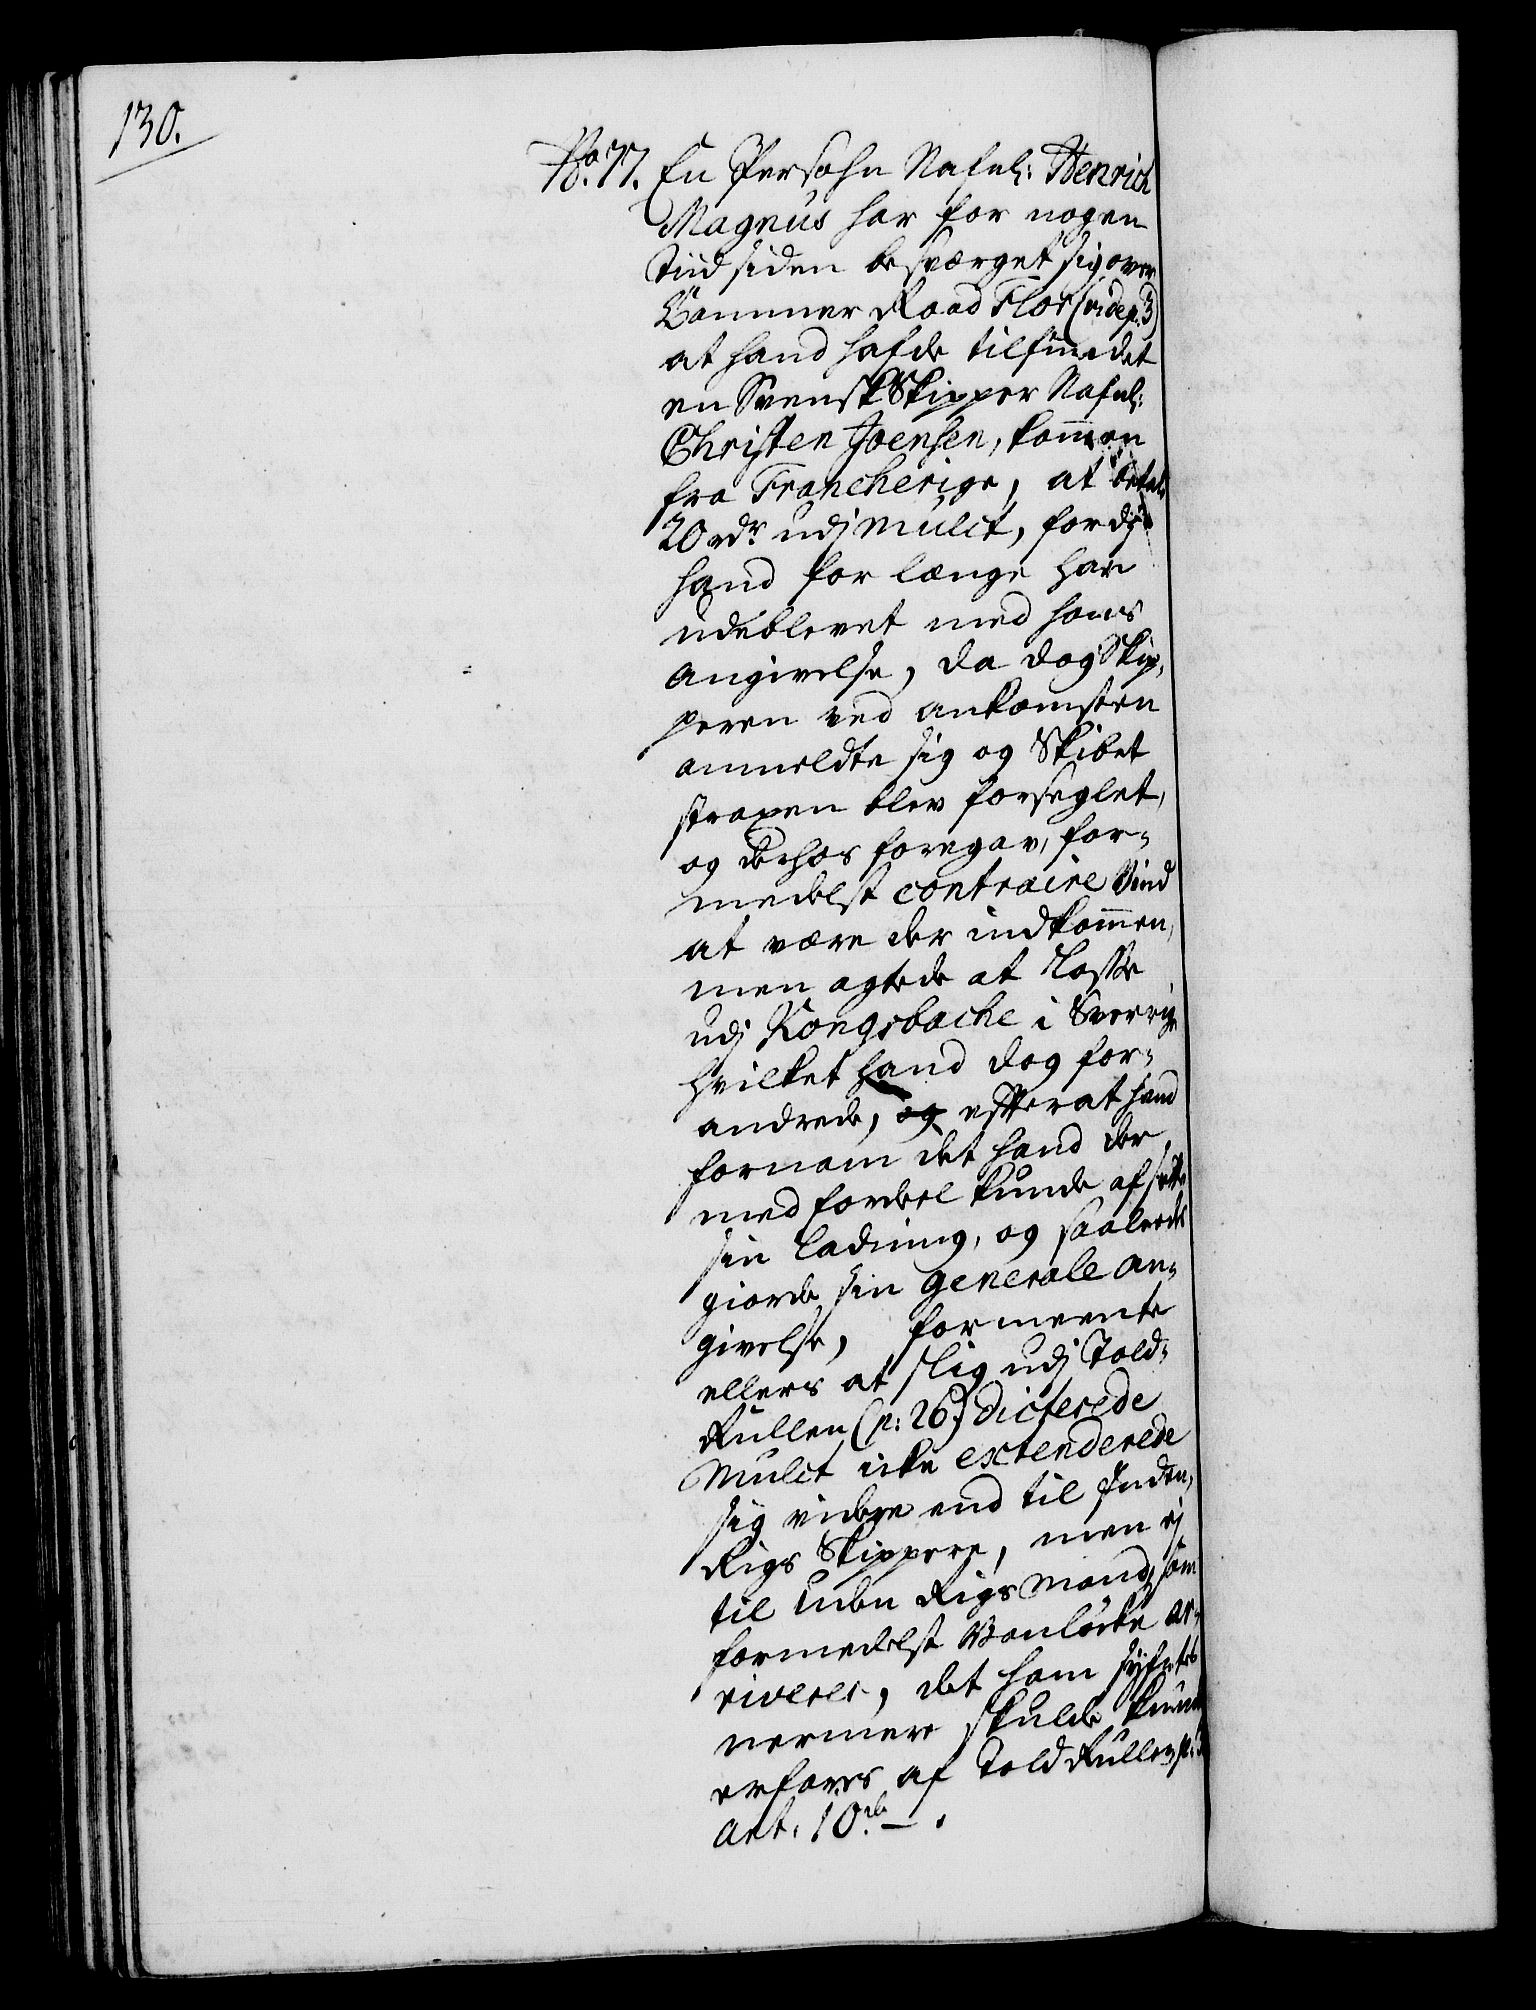 130.
No. 77. En Persohn Nafnl: Henrich
Magnus har for nogen
tiid siden besværget sig over
Cammer Raad Flor (vide p. 3)
at hand hafde tilfundet
en Svensk Skipper Nafnl:
Christen Joensen, kommen
fra Francherige, at betale
20 rdr. udj Mulct, fordj
hand for længe har
udeblevet med hans
Angivelse, da dog Skip-
peren ved ankomsten
anmeldte sig og Skibet
straxen blev forseglet,
og derhos foregav, for-
medelst contraire Vind
at være der indkommen,
men agtede at Losse
udj Kongsbache i Sverrige
hvilket hand dog for-
andrede, og effterat hand
fornam det hand der
med fordeel kunde afsætte
sin Ladning, og saaleedes
giorde sin generale An-
givelse, formeente
ellers at slig udj Told-
Rullen (p: 26.) dicterede
Mulct icke extenderede
sig videre end til Inden-
Rigs Skippere, men ej
til uden Rigs Mænd, som
formedelst Vanløcke ar-
riverer, det ham syfntes
nermere skulde kunde
erfares af Told Rullen p.
art. 10de.